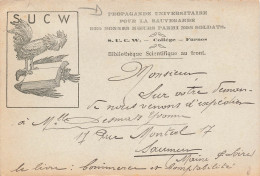 SUCW
PROPAGANDE UNIVERSITAIRE
POUR LA SAUVEGARDE
DES BONNES MŒURS PARMI NOS SOLDATS.
S. U. C. W. — Collège — Furnes
Bibliothèque Scientifique au front.
Monsieur
Sur votre demande
nous venons d'expédier
à Mlle Desmots Yvonne
17 Rue Montcel 17
Saumur
Maine & Loire
le livre: Commerce et Comptabilité